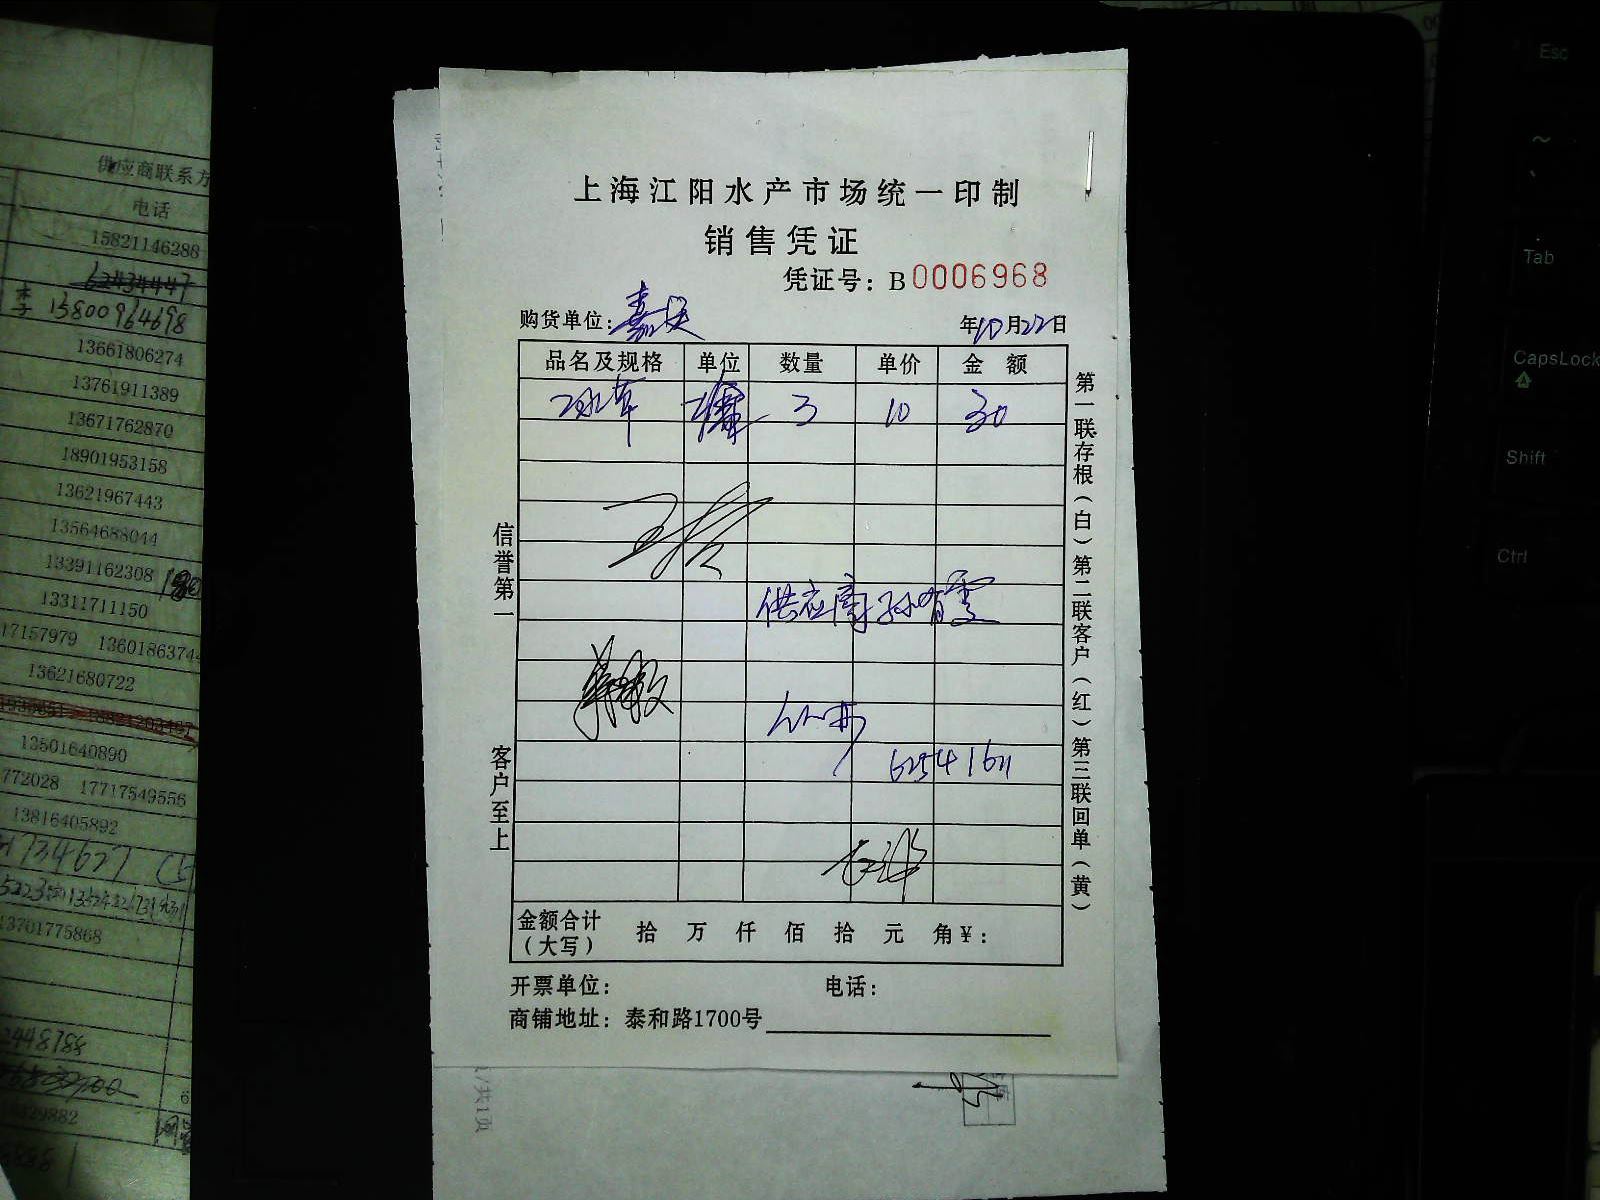 供应商联系方
电话
15821146288
62434447
李 13800964698
13661806274
13761911389
13671762870
18901953158
13621967443
13564688044
13391162308
13311711150
17157979 1360186374
13621680722
13501640890
772028 17717549556
13816405892
13701775868
2448788
29882
上海江阳水产市场统一印制
销售凭证
凭证号：B0006968
购货单位：嘉 年10月22日
品名及规格 单位 数量 单价 金额
冰草 3 10 30
供应商 孙有雯
62541611
金额合计（大写） 拾 万 仟 佰 拾 元 角￥：
开票单位： 电话：
商铺地址：泰和路1700号
信誉第一
客户至上
第一联存根（白）第二联客户（红）第三联回单（黄）
/共1页
Esc
~
Tab
CapsLock
Shift
Ctrl